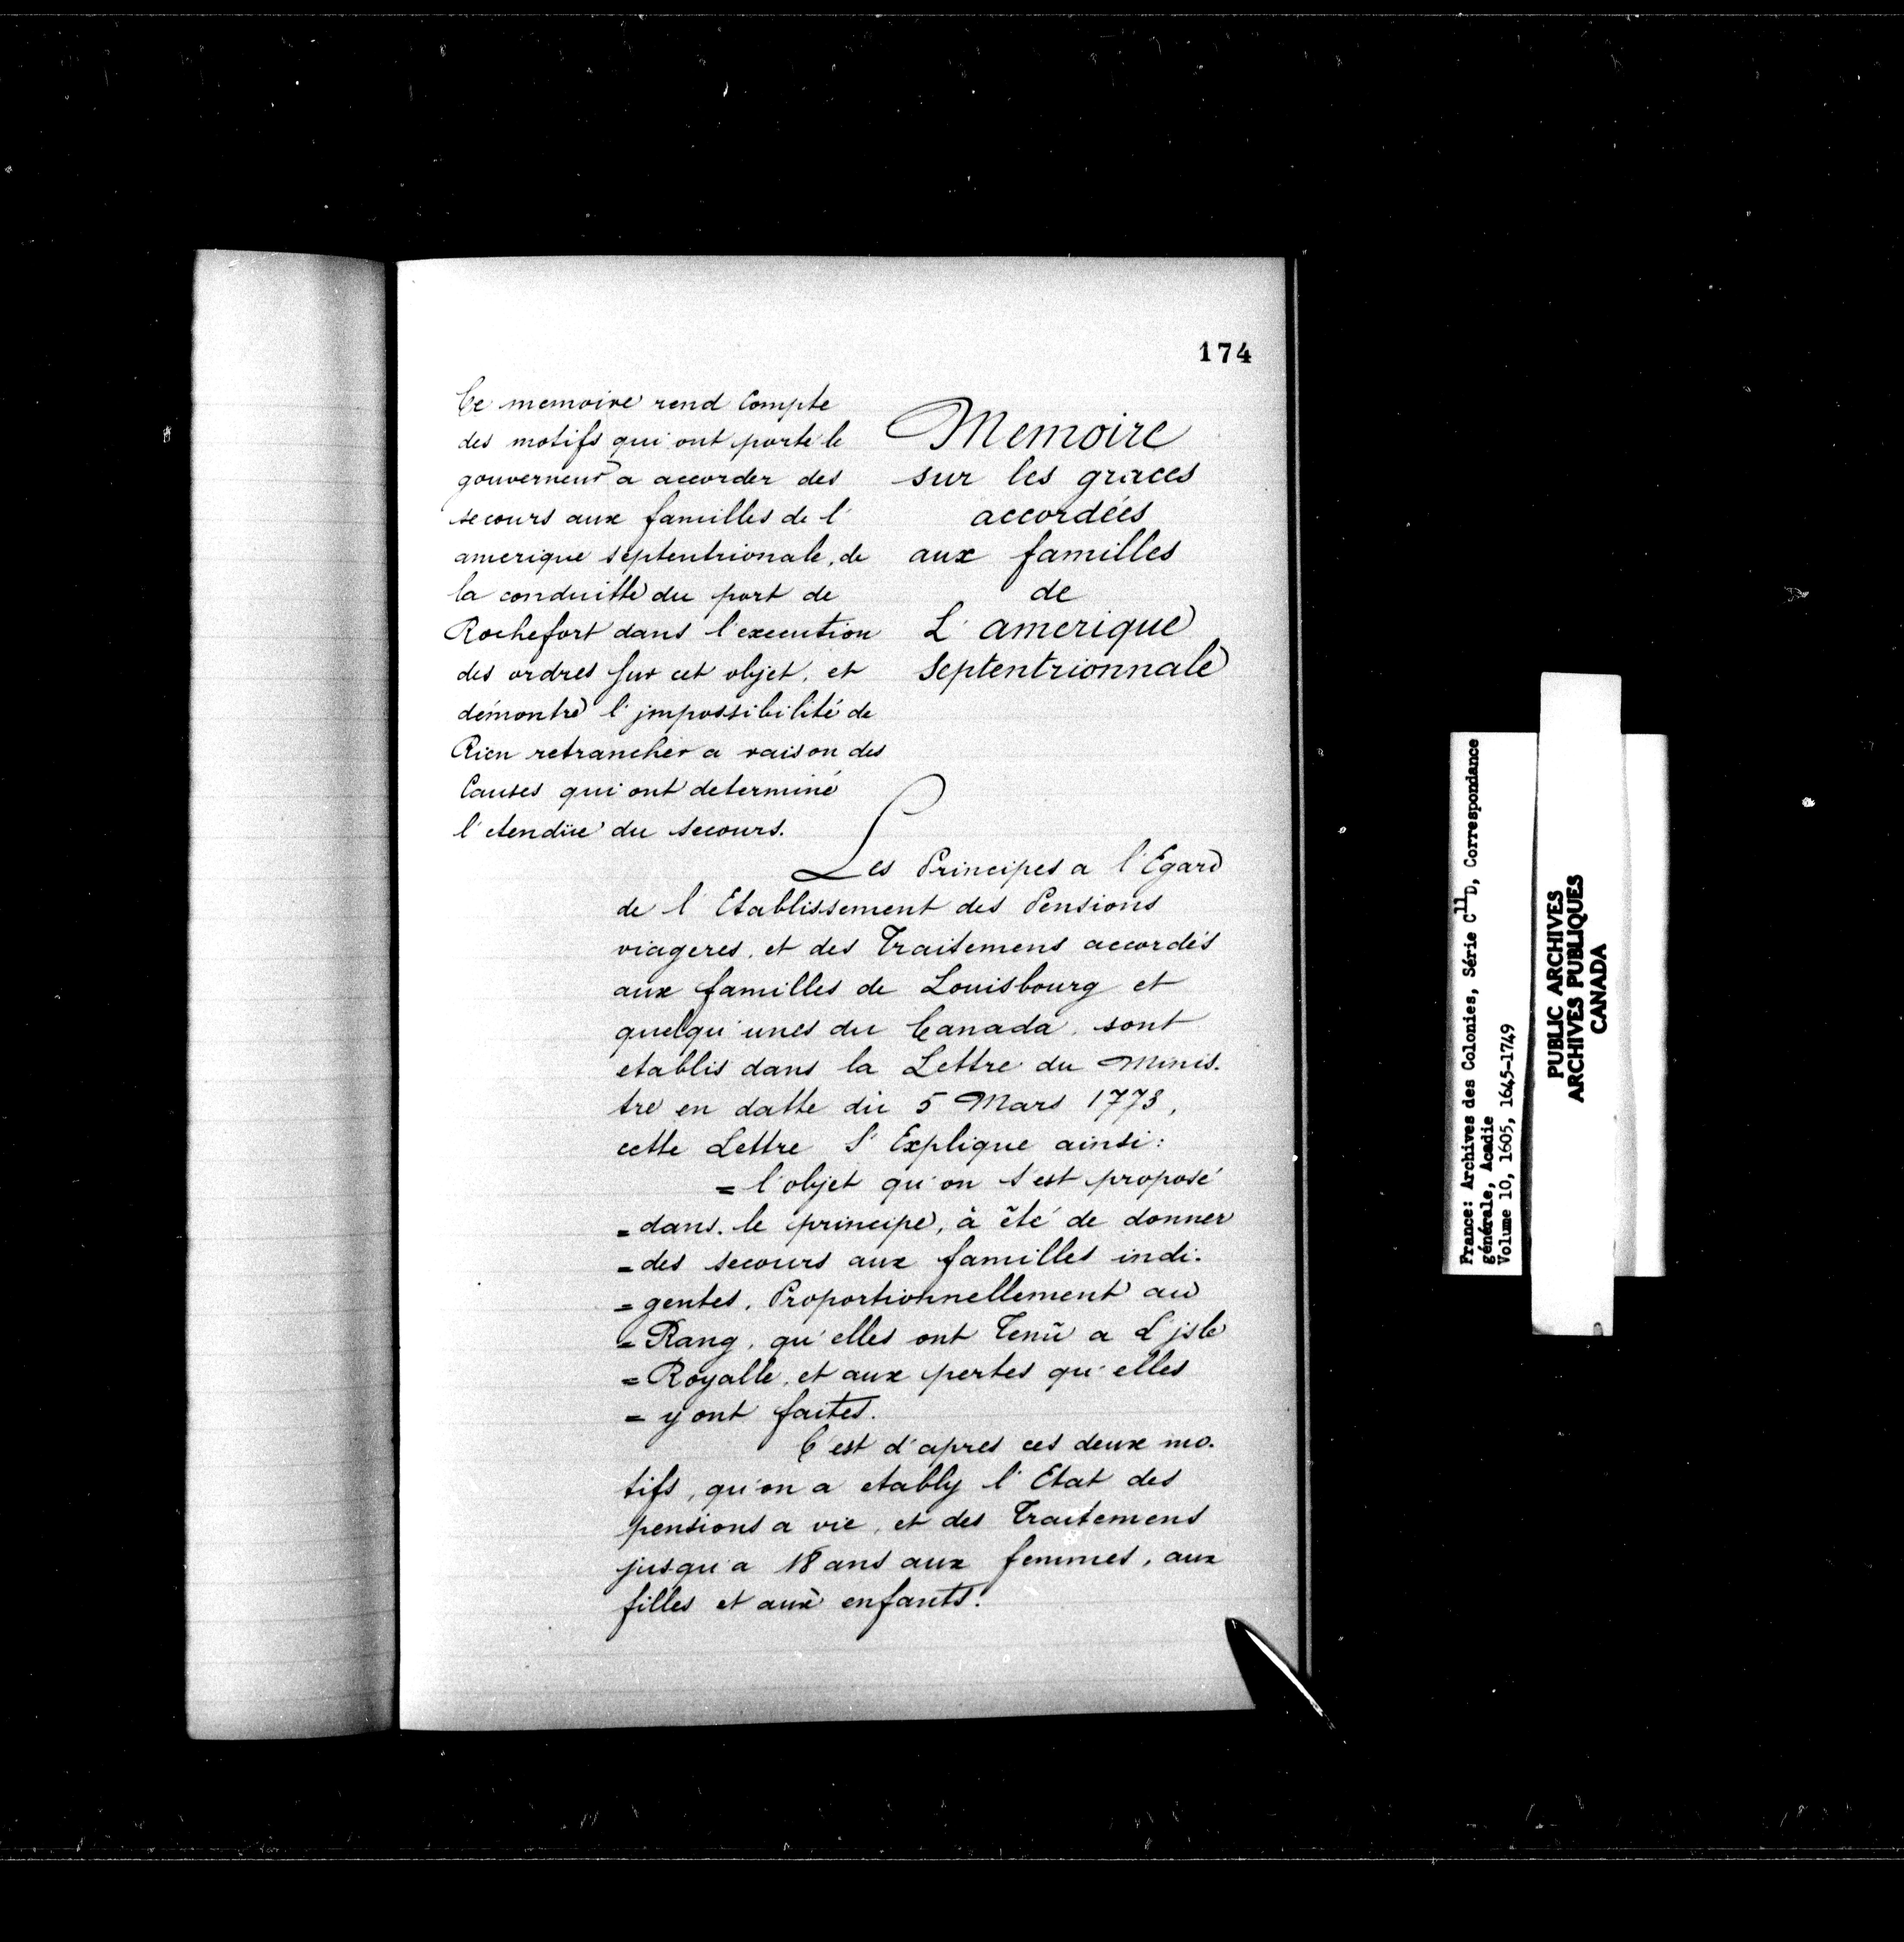 174
Ce memoire rend Compte
des motifs qui ont porté le
gouverneur a accorder des
secours aux familles de l'
amerique septentrionale, de
la conduitte du port de
Rochefort dans l'execution
des ordres sur cet objet, et
démontre l'jmpossibilité de
Rien retrancher a raison des
Causes qui ont determiné
l'etendüe du secours.
Memoire
sur les graces
accordées
aux familles
de
L'amerique
Septentrionnale
Les Principes a l'Egard
de l'Etablissement des Pensions
viageres, et des Traitemens accordés
aux familles de Louisbourg et
quelqu'unes du Canada, sont
etablis dans la Lettre du Minis-
tre en datte du 5 Mars 1773,
cette Lettre S'Explique ainsi:
= l'objet qu'on s'est proposé
= dans le principe, à été de donner
= des secours aux familles indi-
= gentes, Proportionnellement au
= Rang, qu'elles ont Tenû a L'jsle
= Royalle, et aux pertes qu'elles
= y ont faites.
C'est d'apres ces deux mo-
tifs, qu'on a etably l'Etat des
pensions a vie, et des Traitemens
jusqu'a 18 ans aux femmes, aux
filles et aux enfants.
France: Archives des Colonies, Série C11D, Correspondance
générale, Acadie
Volume 10, 1605, 1645-1749
PUBLIC ARCHIVES
ARCHIVES PUBLIQUES
CANADA